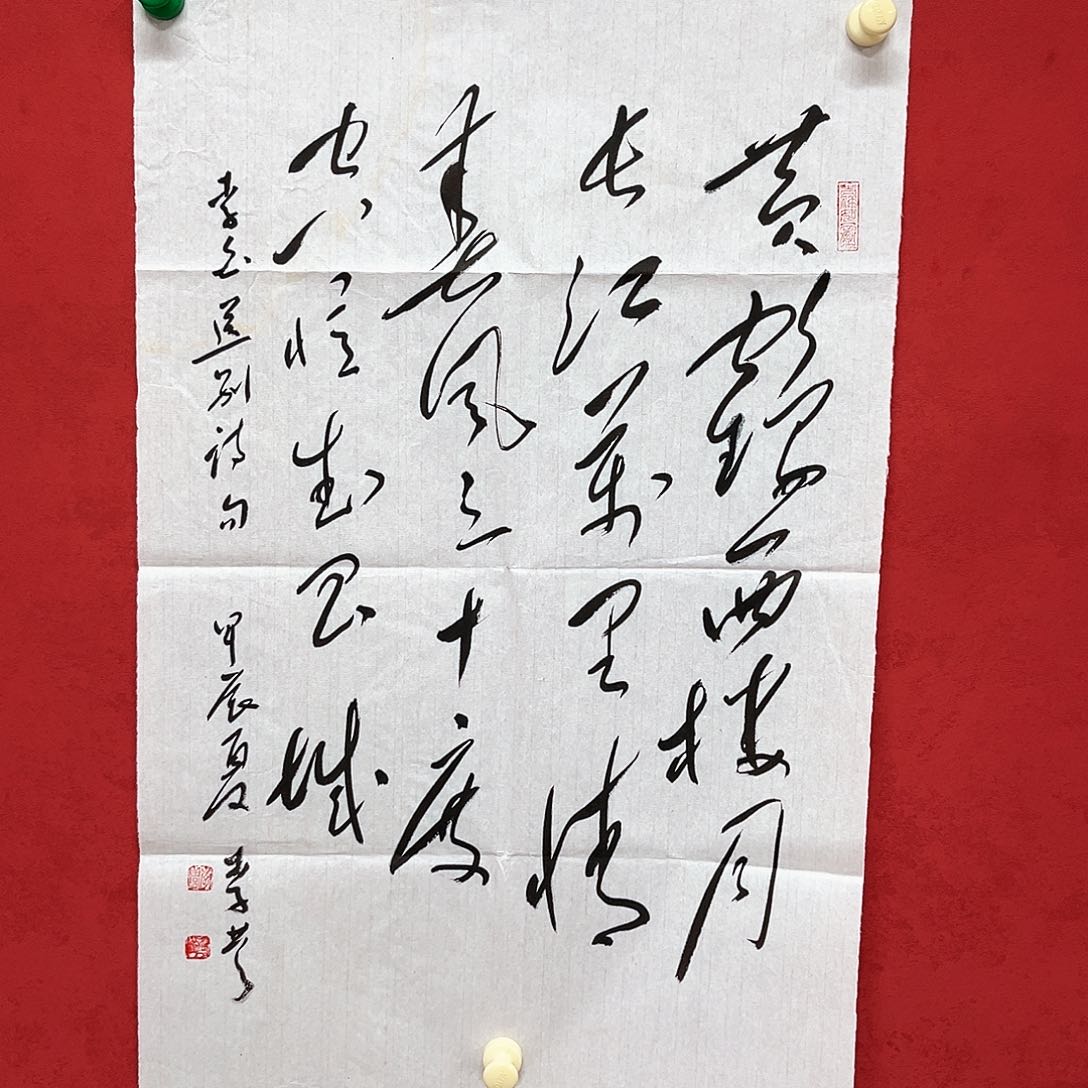 黄鶴西楼月
长江萬里情
春风三十度
空憶武昌城
李白送别诗句 甲辰夏 李